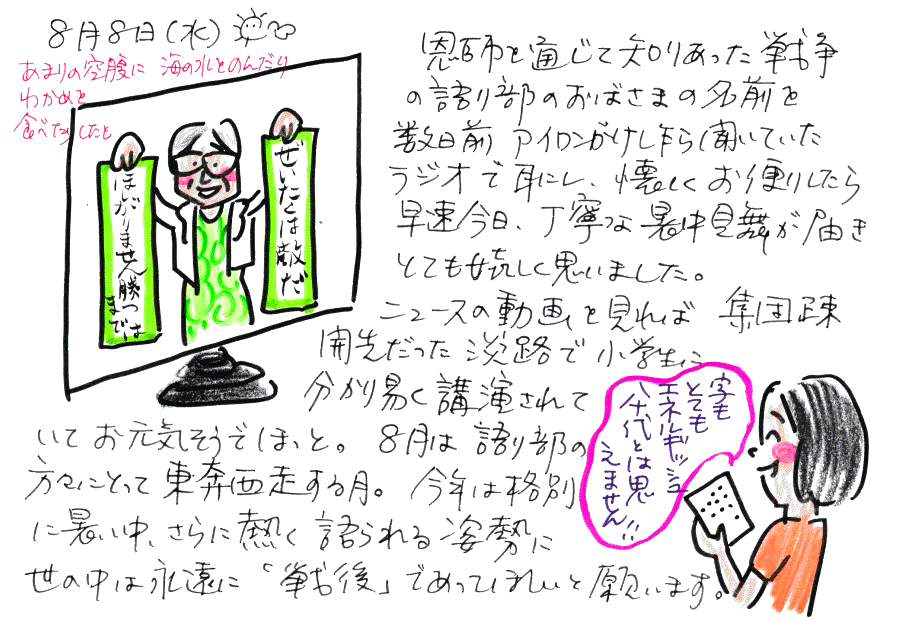 8月8日(水)
あまりの空腹に 海の水とのんだり
わかめを
食べたりしたと
ぜいたくは敵だ
ほしがりません勝つ
までは
恩師を通じて知りあった戦争
の語り部のおばさまの名前を
数日前 アイロンがけし乍ら聞いていた
ラジオで耳にし、懐しくお便りしたら
早速今日、丁寧な暑中見舞が届き
とても嬉しく思いました。
ニュースの動画を見れば 集団疎
開先だった淡路で小学生に
分かり易く講演されて
いてお元気そうでほっと。8月は語り部の
方々にとって東奔西走する月。今年は格別
に暑い中、さらに熱く語られる姿勢に
世の中は永遠に「戦後」であってほしいと願います。
字も
とても
エネルギッシュ
八十代とは思
えません!!